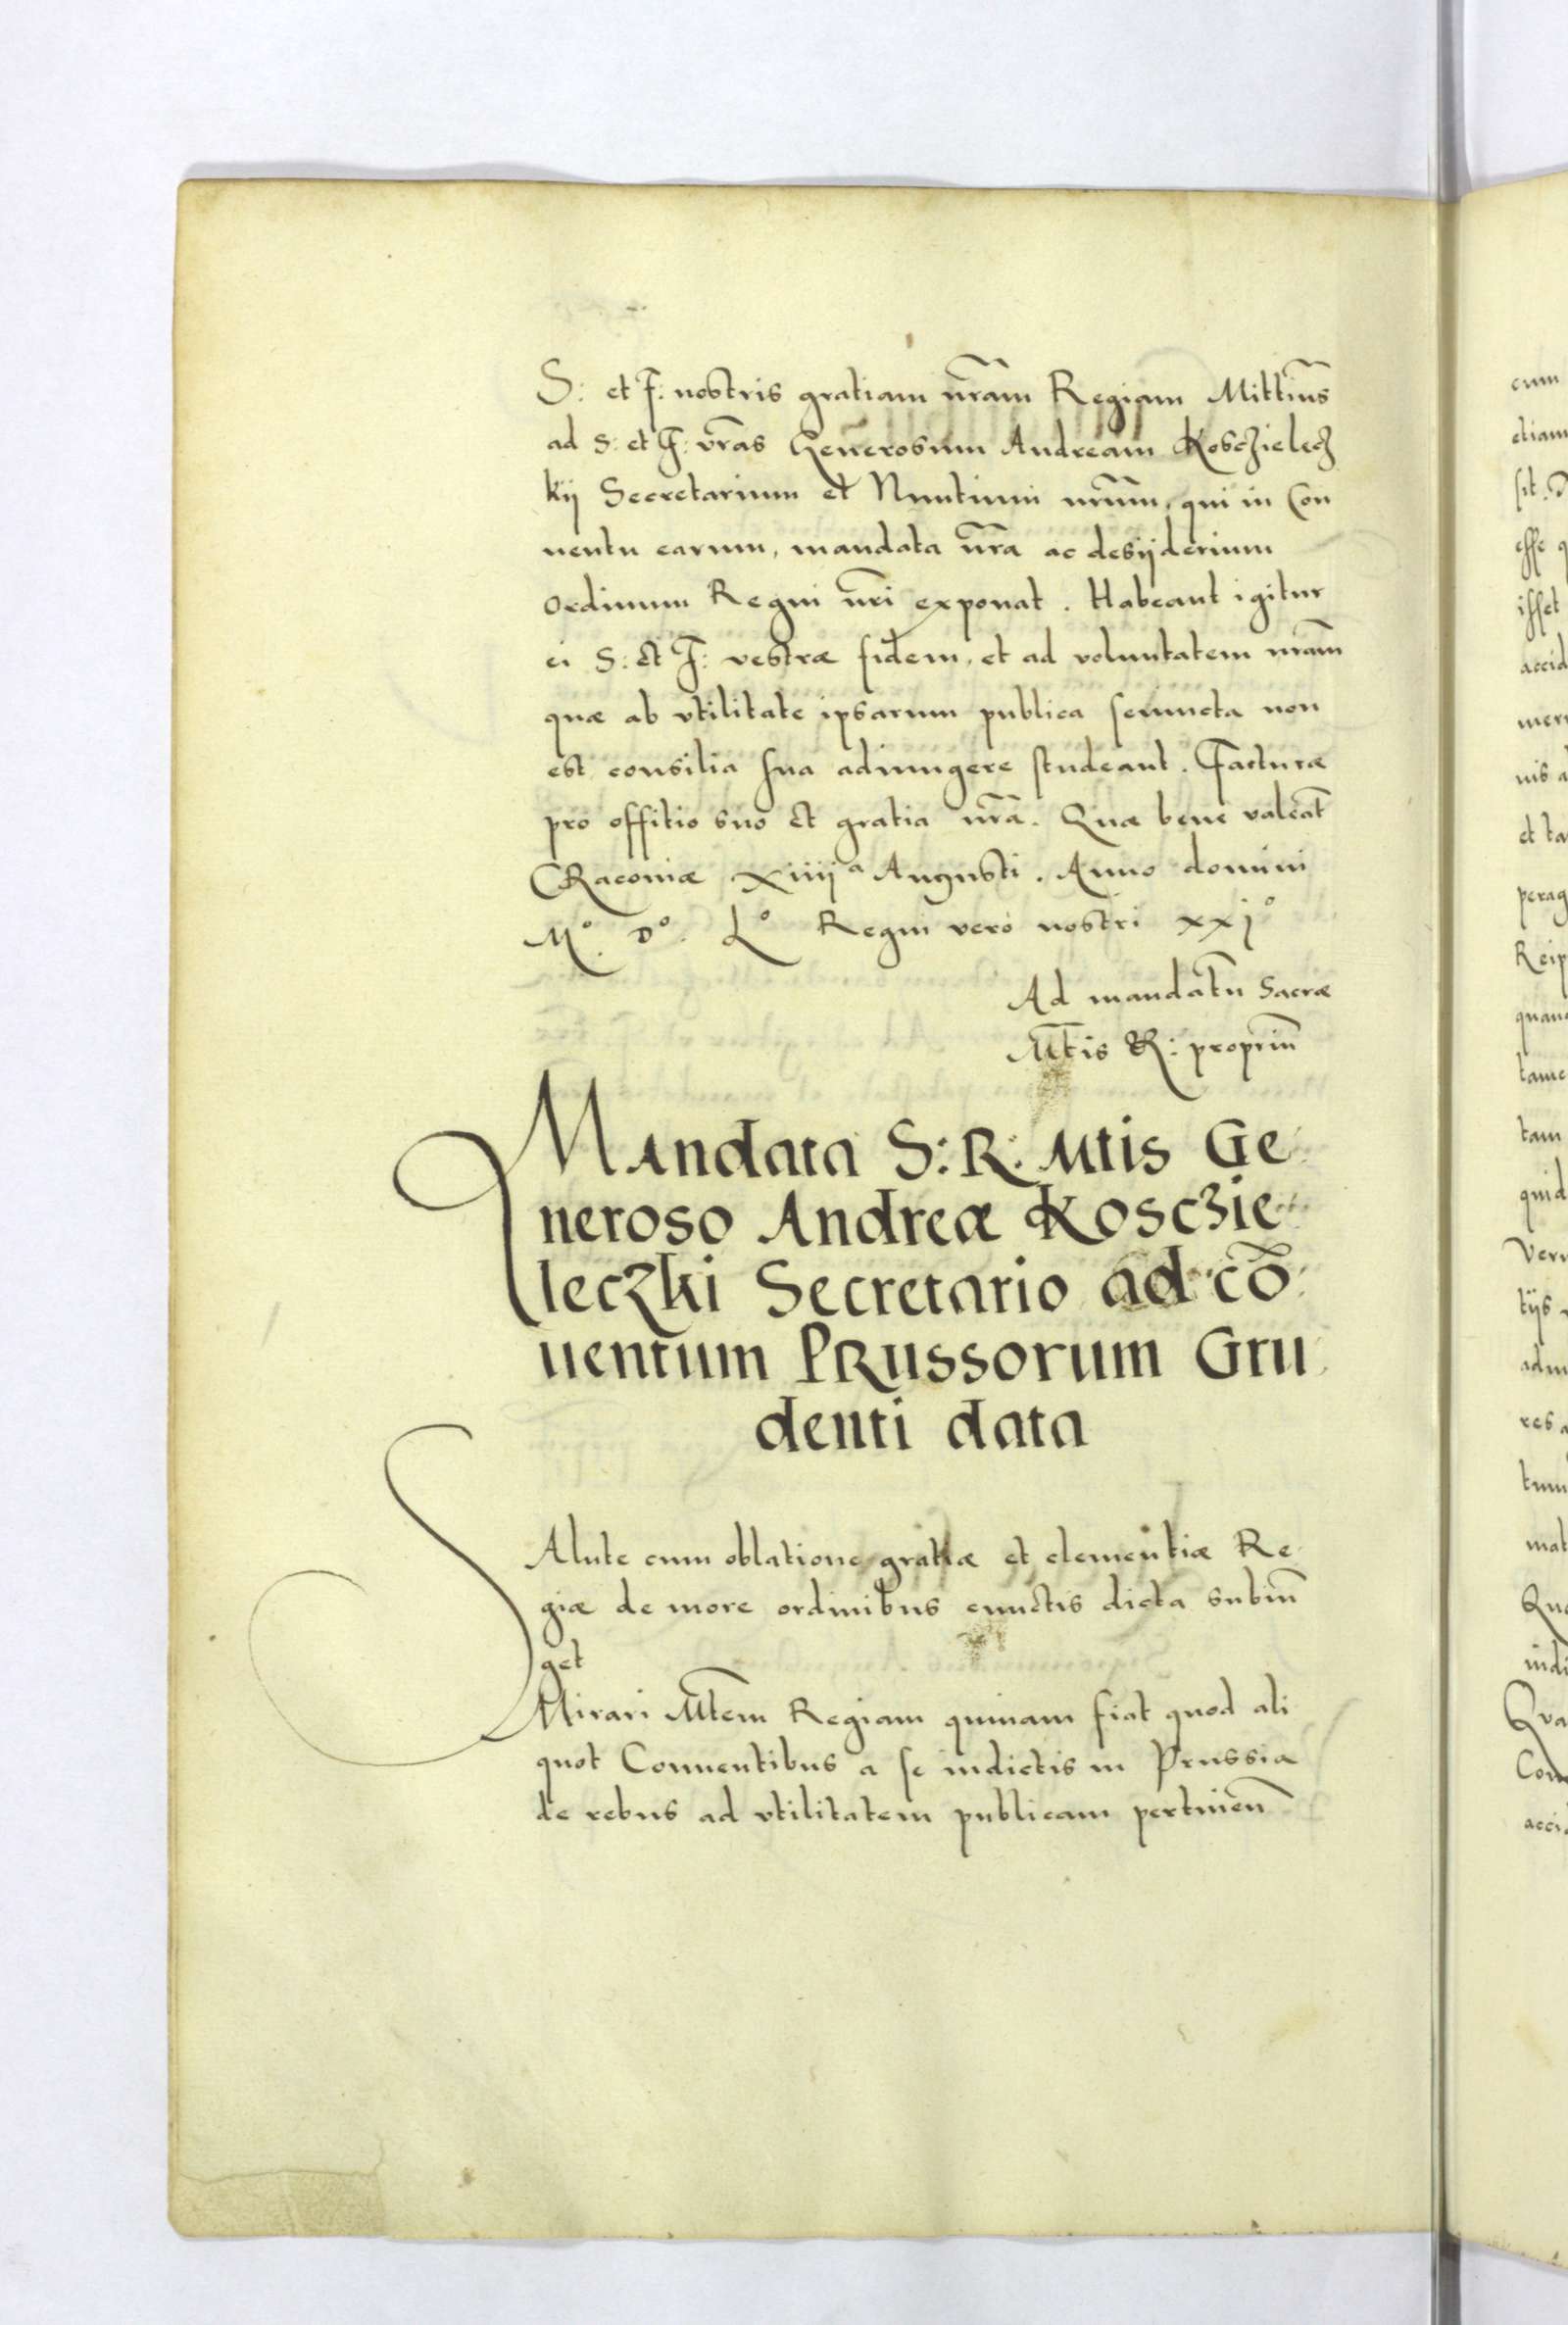 S: et F: nostris gratiam nr̃am Regiam Mittim̃s
ad S: et F: vr̃as Generosum Andream Kosczielecz
kij Secretarium et Nuntium nr̃um, qui in Con
uentu earum, mandata nr̃a ac desijderium
ordinum Regni nr̃i exponat. Habeant igitur
ei S: et F: vestræ fidem, et ad voluntatem nr̃am
quæ ab vtilitate ipsarum publica seiuncta non
est consilia sua adiungere studeant. Facturæ
pro offitio suo et gratia nr̃a. Quæ bene valeãt
CRacouiæ Xiiijᵃ Augusti. Anno domini
M° D° L° Regni vero nostri xxj°
Ad mandatũ Sacræ
Mt̃is R: propriũ
MAndata S: R: Mtis Ge
neroso Andreæ Kosczie
leczki Secretario ad cõ
uentum PRussorum Gru
denti data
SAlute cum oblatione gratiæ et clementiæ Re
giæ de more ordinibus cunctis dicta subiũ
get
Mirari Mt̃em Regiam quinam fiat quod ali
quot Conuentibus a se indictis in Prussia
de rebus ad vtilitatem publicam pertineñ
cum
etiam
sit.
esse q
isset
accid
uis a
et ta
perag
Reip
quan
tame
tam
quid
tijs
res a
mat
indi